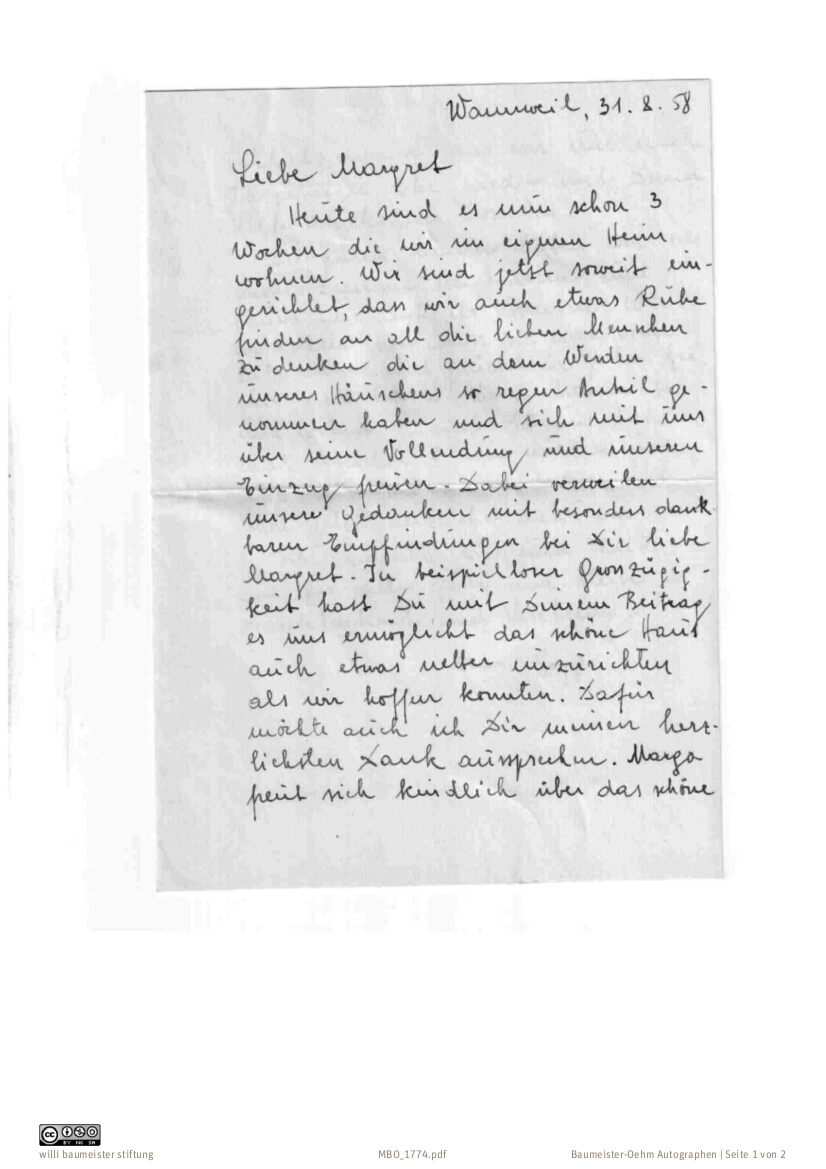 Wannweil, 31. 8. 58
Liebe Margret
Heute sind es nun schon 3
Wochen die wir im eigenen Heim
wohnen. Wir sind jetzt soweit ein-
gerichtet, dass wir auch etwas Ruhe
finden an all die lieben Menschen
zu denken die an dem Werden
unseres Häuschens so regen Anteil ge-
nommen haben und sich mit uns
über seine Vollendung und unseren
Einzug freuen. Dabei verweilen
unsere Gedanken mit besonders dank-
baren Empfindungen bei Dir liebe
Margret. In beispielloser Grosszügig-
keit hast Du mit Deinem Beitrag
es uns ermöglicht das schöne Haus
auch etwas netter einzurichten
als wir hoffen konnten. Dafür
möchte auch ich Dir meinen herz-
lichsten Dank aussprechen. Marga
freut sich kindlich über das schöne
willi baumeister stiftung MBO_1774.pdf Baumeister-Oehm Autographen | Seite 1 von 2
cc BY NC SA